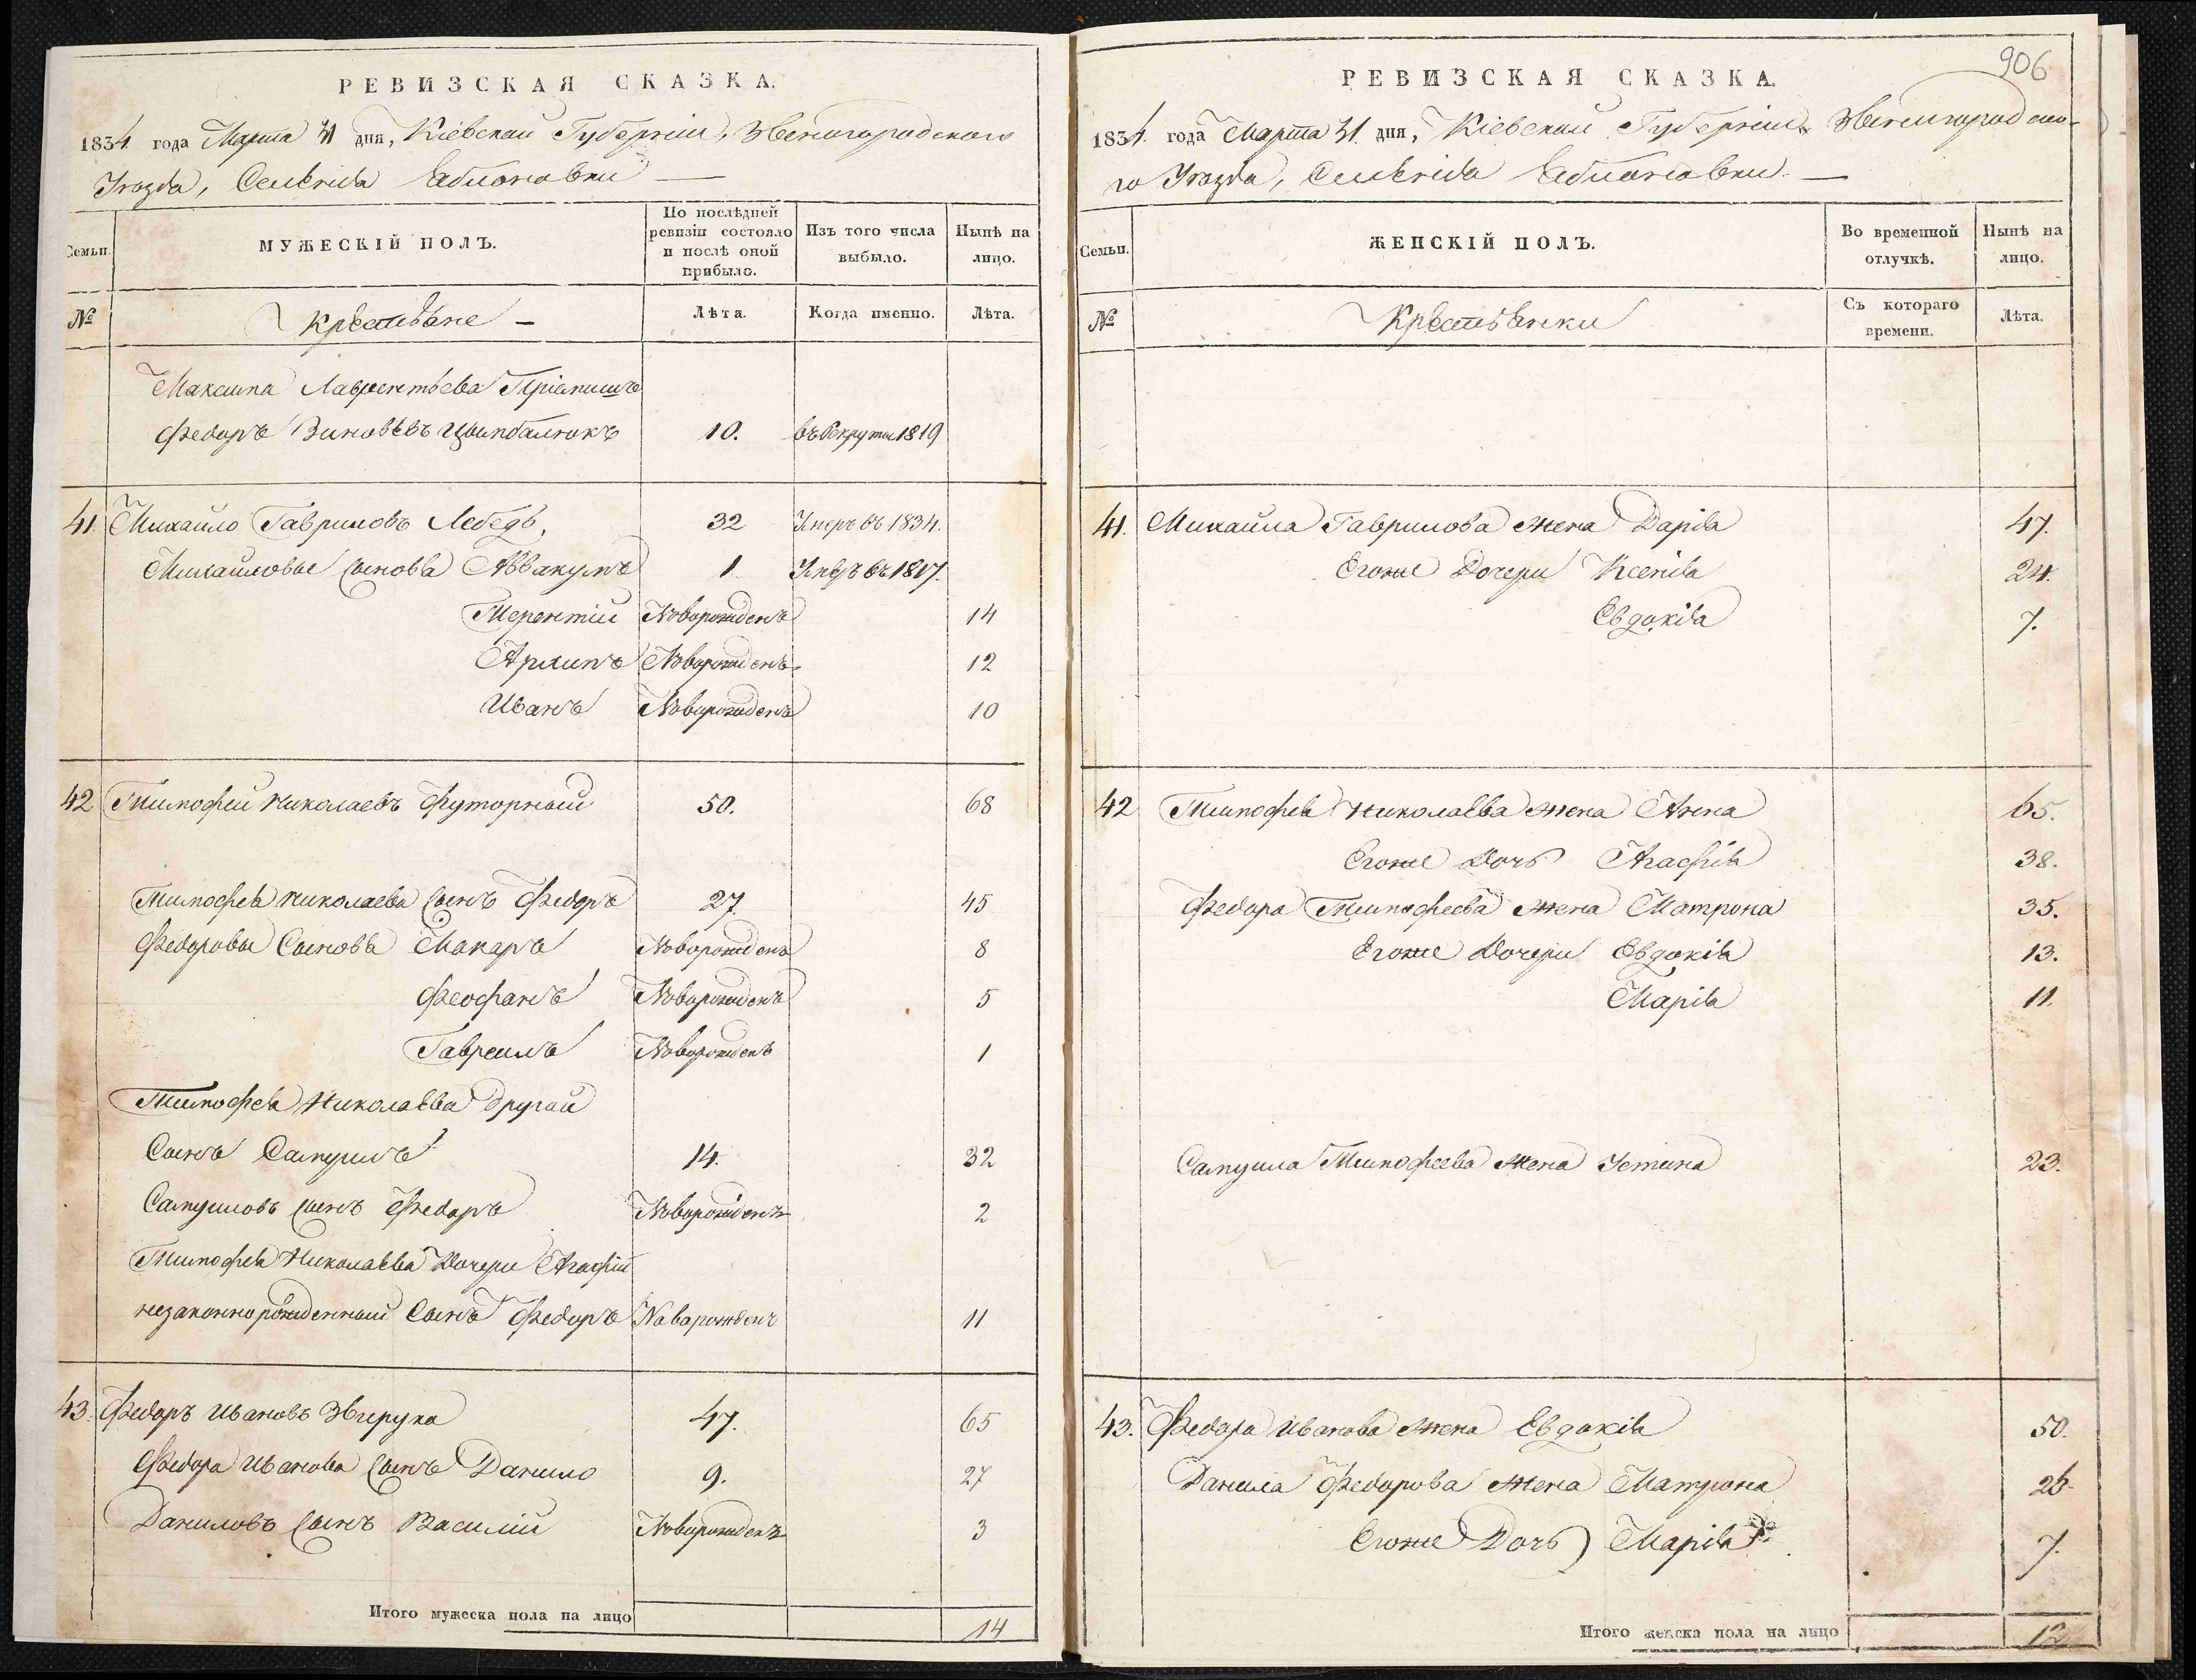 РЕВИЗСКАЯ СКАЗКА.
1834 года Марта 31 дня, Кіевской Губерніи, Звенигородского
Уѣзда, Селенія Яблоновки —
Семьи.
МУЖЕСКІЙ ПОЛЪ.
По послѣдней ревизіи состояло и послѣ оной прибыло.
Изъ того числа выбыло.
Нынѣ на лицо.
№
Крестьяне —
Лѣта.
Когда именно.
Лѣта.
Максима Лаврентьева
Федоръ Зиновьевъ Цымбалюкъ 10. въ Рекруты 1819
41. Михайло Гавриловъ Лебедь, 32 Умеръ въ 1834.
Михайловые сыновья Аввакумъ 1 Умеръ въ 1817.
Терентій Новорожденъ 14
Архипъ Новорожденъ 12
Иванъ Новорожденъ 10
42 Тимофей Николаевъ Футорный 50. 68
Тимофея Николаева сынъ Федоръ 27. 45
Федоровы Сыновья Макаръ Новорожденъ 8
Феофанъ Новорожденъ 5
Гавриилъ Новорожденъ 1
Тимофея Николаева другой
Сынъ Самуилъ 14. 32
Самуиловъ сынъ Федоръ Новорожденъ 2
Тимофея Николаева Дочери Агафіи
незаконнорожденный Сынъ Федоръ Новорожденъ 11
43. Федоръ Ивановъ Звирука 47. 65
Федора Иванова сынъ Данило 9. 27
Даниловъ сынъ Василій Новорожденъ 3
Итого мужеска пола на лицо 14
906
РЕВИЗСКАЯ СКАЗКА.
1834. года Марта 31. дня, Кіевской Губерніи Звенигородско-
го Уѣзда, Селенія Яблоновки. —
Семьи.
ЖЕНСКІЙ ПОЛЪ.
Во временной отлучкѣ.
Нынѣ на лицо.
№
Крестьянки
Съ котораго времени.
Лѣта.
41. Михайла Гаврилова жена Дарія 47.
Егоже Дочери Ксенія 24.
Евдокія 7.
42 Тимофея Николаева жена Анна 65.
Егоже Дочь Агафія 38.
Федора Тимофеева жена Матрона 35.
Егоже Дочери Евдокія 13.
Марія 11.
Самуила Тимофеева жена Устина 23.
43. Федора Иванова жена Евдокія 50.
Данила Федорова жена Матрона 26.
Егоже Дочь Марія 7.
Итого женска пола на лицо 12